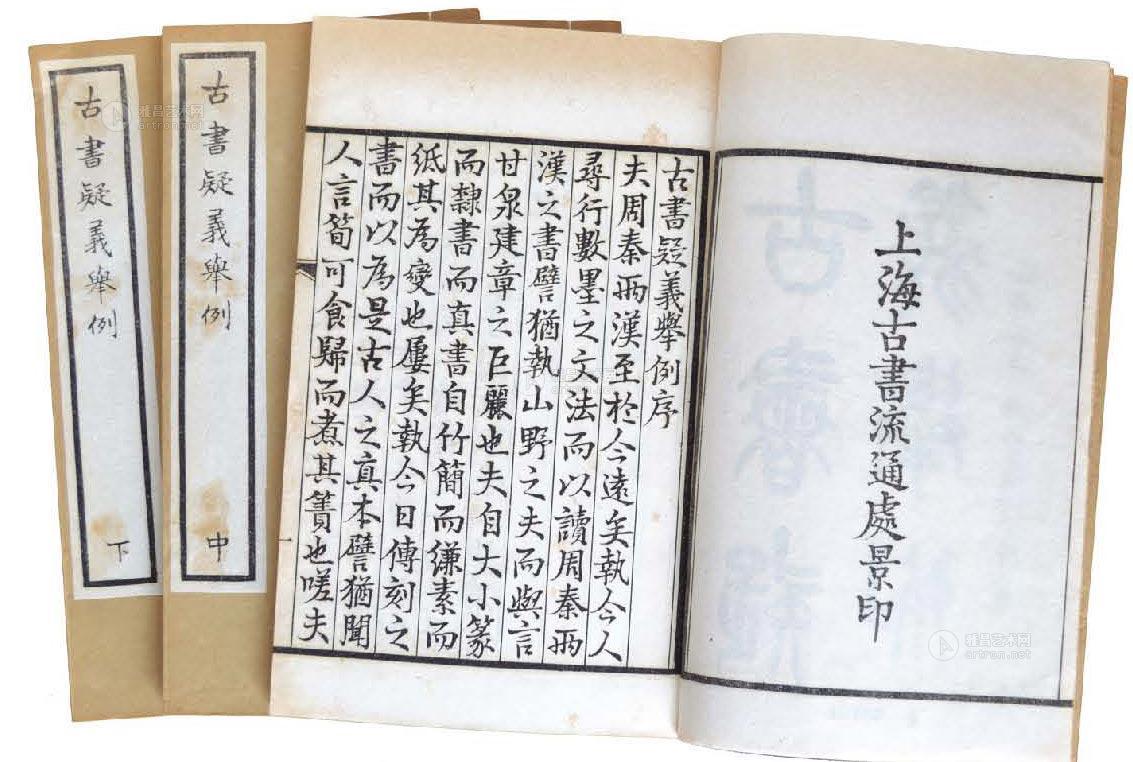 上海古書流通處景印
古書疑義舉例序
夫周秦兩漢至於今遠矣執今人
尋行數墨之文法而以讀周秦兩
漢之書譬猶執山野之夫而與言
甘泉建章之巨麗也夫自大小篆
而隸書而真書自竹簡而縑素而
紙其為變也屢矣執今日傳刻之
書而以為是古人之真本譬猶聞
人言筍可食歸而煮其簀也嗟夫
古書疑義舉例
中
古書疑義舉例
下
雅昌艺术网
artron.net
雅昌艺术网
artron.net